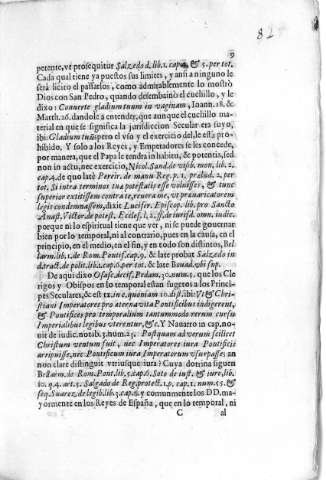 9
82
petente, vt prosequitur Salzedo d. lib. 1. cap. 4. & 5. per tot.
Cada qual tiene ya puestos sus limites, y ansi a ninguno le
será licito el passarlos, como admirablemente lo mostrò
Dios con San Pedro, quando desembainò el cuchillo, y le
dixo: Conuerte gladium tuum in vaginam, Ioann. 18. &
Matth. 26. dandole a entender, que aun que el cuchillo mate-
rial en que se significa la jurisdiccion Secular era suyo,
ibi: Gladium tuũ; pero el vso y el exercicio del, le està pro-
hibido. Y solo a los Reyes, y Emperadores se les concede,
por manera, que el Papa le tendra in habitu, & potentia, sed
non in actu, nec exercicio, Nicol. Sand. de visib. mon. lib. 2.
cap. 4. de quo latè Pereir. de manu Reg. p. 1. prælud. 2. per
tot. Si intra terminos tua potestatis esse voluisses, & tunc
superior extitissem contra te, reuera me, vt præuaricatorem
legis condemnassem, dixit Lucifer. Episcop. lib. pro Sancto
Anast. Victor. de potest. Eccles. l. 2. ff. de iurisd. omn. iudic.
porque ni lo espiritual tiene que ver, ni se puede gouernar
bien por lo temporal, ni al contrario, pues en la causa, en el
principio, en el medio, en el fin, y en todo son distintos, Bel-
larm. lib. 1. de Rom. Pontif. cap. 9. & latè probat Salzedo in
d. tract. de polit. lib. 1. cap. 6. per tot. & late Bouad. vbi sup.
De aqui dixo Osasc. decis. Pedam. 30. num. 5. que los Cle-
rigos y Obispos en lo temporal estan sugetos a los Princi-
pes Seculares, & est tx. in c. quoniam 10. dist. ibi: Vt & Chri-
stiani Imperatores pro æterna vita Pontificibus indigerent,
& Pontifices pro temporalium tantummodo rerum cursu
Imperialibus legibus vterentur, &c. Y Nauarro in cap. no-
uit de iudic. notab. 3. num. 23. Postquam ad verum scilicet
Christum ventum fuit, nec Imperatores iura Pontificij
arripuisse, nec Pontificum iura Imperatorum vsurpasse; an
non clare distinguit vtriusque iura? Cuya dotrina siguen
Bellarm. de Rom. Pont. lib. 5. cap. 6. Soto de iust. & iure, lib.
10. q. 4. art. 5. Salgado de Reg. protect. 1. p. cap. 1. num. 55. &
seq. Suarez, de legib. 3. cap. 6. y comunmente los DD. ma-
yormente en los Reyes de España, que en lo temporal, ni
C
al